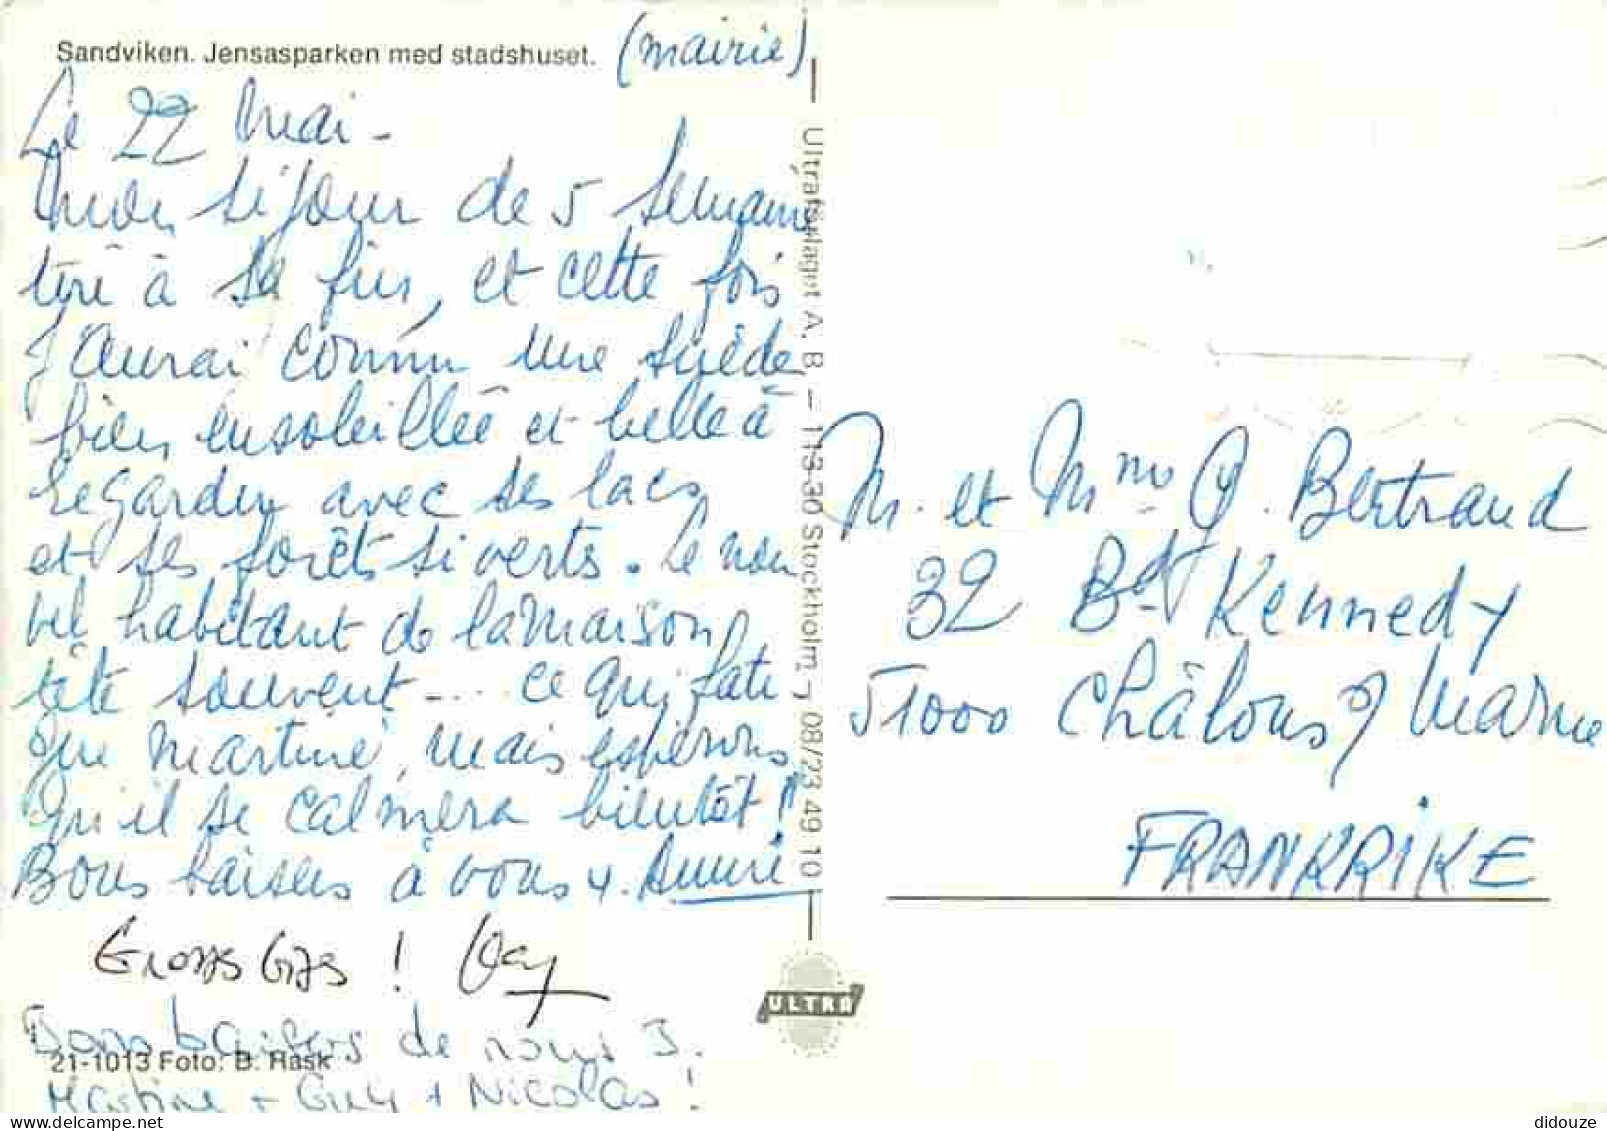 Sandviken. Jensasparken med stadshuset. (mairie)
Le 22 Mai -
Mon séjour de 5 semaines
tire à sa fin, et cette fois
j'aurai connu une Suède
bien ensoleillée et belle à
regarder avec ses lacs
et ses forêts si verts. Le nou
vel habitant de la maison
tète souvent... ce qui fati
gue Martine, mais espérons
qu'il se calmera bientôt !
Bons baisers à vous 4.
Grosses bises ! Guy
Bons baisers de nous 3.
21-1013 Foto: B. Rask
Martine + Guy + Nicolas !
Ultraförlaget A.B. - 113-30 Stockholm, 08/23 49 10
ULTRA
M. et Mme G. Bertrand
32 Bd Kennedy
51000 Châlons s/ Marne
FRANKRIKE
didouze